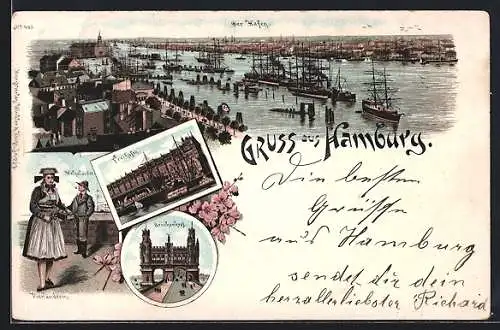 Der Hafen.
GRUSS aus Hamburg.
Freihafen
Vierländerin.
Die besten
Grüsse
aus Hamburg
sendet dir dein
herzallerliebster Richard